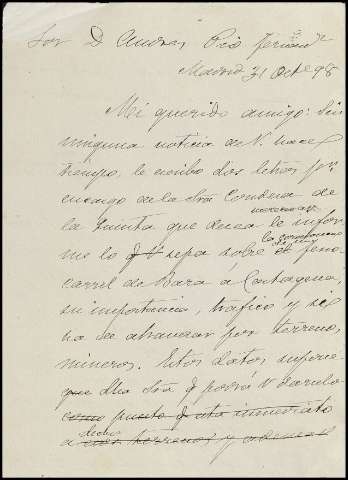 Sor D Andres Pio Fernandz
Madrid 31 Octe 98
Mi querido amigo: Sin
ninguna noticia de V. hace
tiempo, le escribo dos letras por
encargo de la Sra Condesa de
la Quinta que desea le infor
me lo q V sepa sobre el ferro
carril de Baza á Cartagena,
su importancia, trafico y si
ha de atravesar por terrenos
mineros. Estos datos supone
que dha Sra q podrá V darselo
como punto q está inmediato
a dichos terrenos y ademas